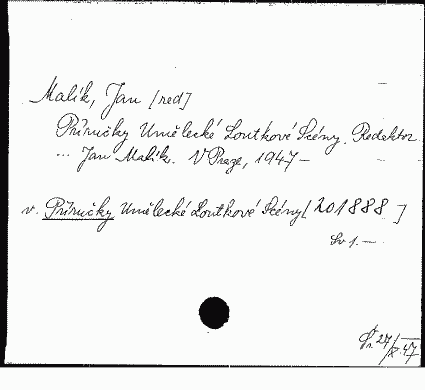 Malík, Jan [red]
Příručky Umělecké Loutkové Scény. Redaktor
... Jan Malík. V Praze, 1947 –
v. Příručky Umělecké Loutkové Scény [201888]
Sv 1. —
27/X.47